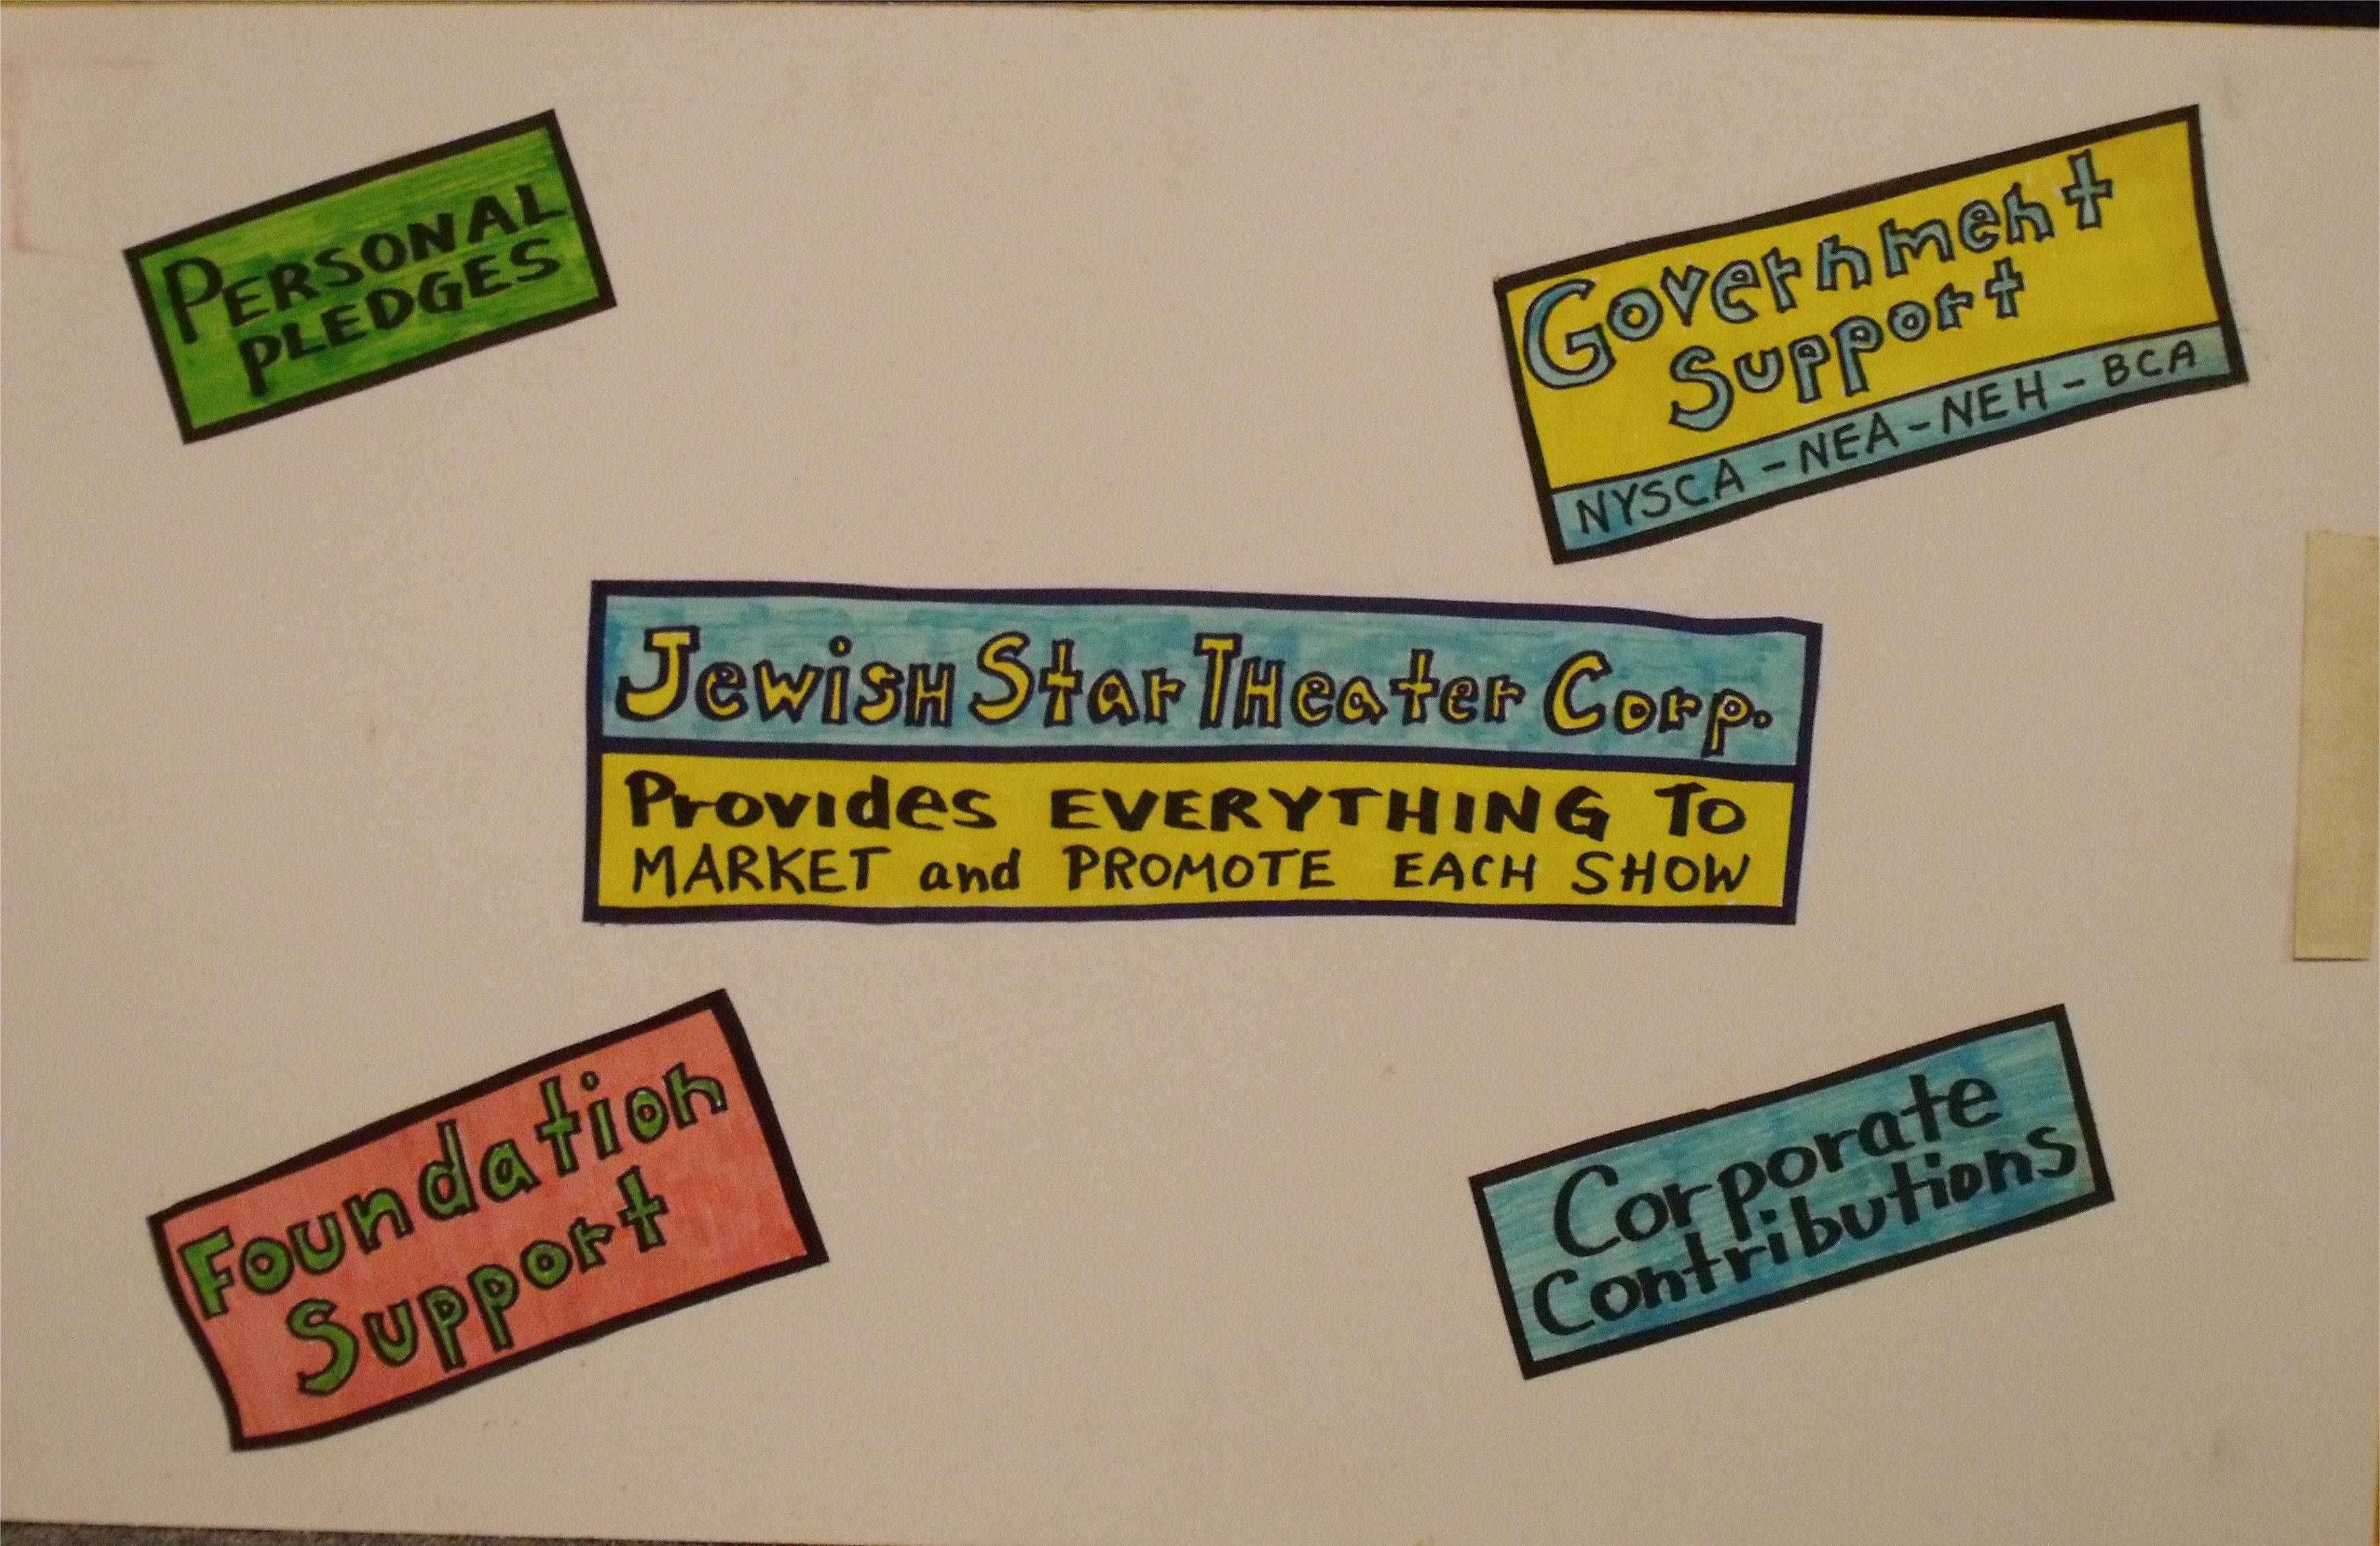 PERSONAL
PLEDGES
Government
Support
NYSCA - NEA - NEH - BCA
Jewish Star Theater Corp.
Provides EVERYTHING TO
MARKET and PROMOTE EACH SHOW
Foundation
Support
Corporate
Contributions